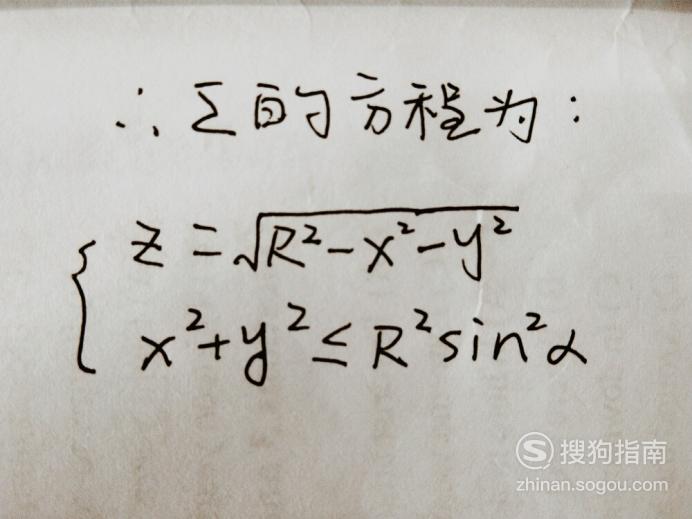 ∴ Σ的方程为:
z = √(R²-x²-y²)
x²+y² ≤ R²sin²α
搜狗指南
zhinan.sogou.com